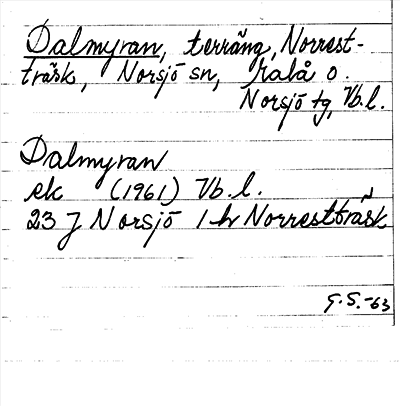 Dalmyran, terräng, Norrest-
träsk, Norsjö sn, Malå o.
Norsjö tg, Vb.l.
Dalmyran
ek (1961) Vb.l.
23 J Norsjö 1 h Norrestträsk
G.S.-63